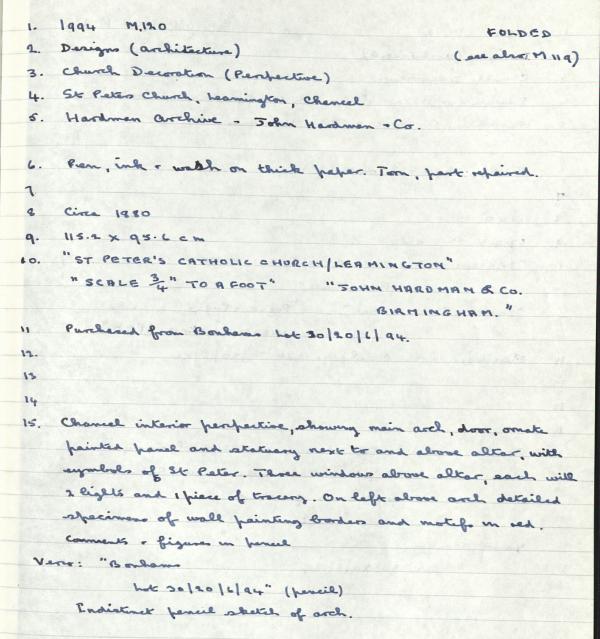 1. 1994 M.120 FOLDED
2. Designs (architecture) (see also M119)
3. Church Decoration (Perspective)
4. St Peters Church, Leamington, Chancel
5. Hardman Archive - John Hardman + Co.
6. Pen, ink + wash on thick paper. Torn, part repaired.
7
8 Circa 1880
9. 115.2 x 95.6 cm
10. "ST PETER'S CATHOLIC CHURCH/LEAMINGTON"
"SCALE 3/4" TO A FOOT" "JOHN HARDMAN & CO.
BIRMINGHAM."
11 Purchased from Bonhams Lot 30/20/6/94.
12.
13
14
15. Chancel interior perspective, showing main arch, door, ornate
painted panel and statuary next to and above altar, with
symbols of St Peter. Three windows above altar, each with
2 lights and 1 piece of tracery. On left above arch detailed
specimens of wall painting borders and motifs in red.
Comments + figures in pencil
Verso: "Bonhams
Lot 30/20/6/94" (pencil)
Indistinct pencil sketch of arch.